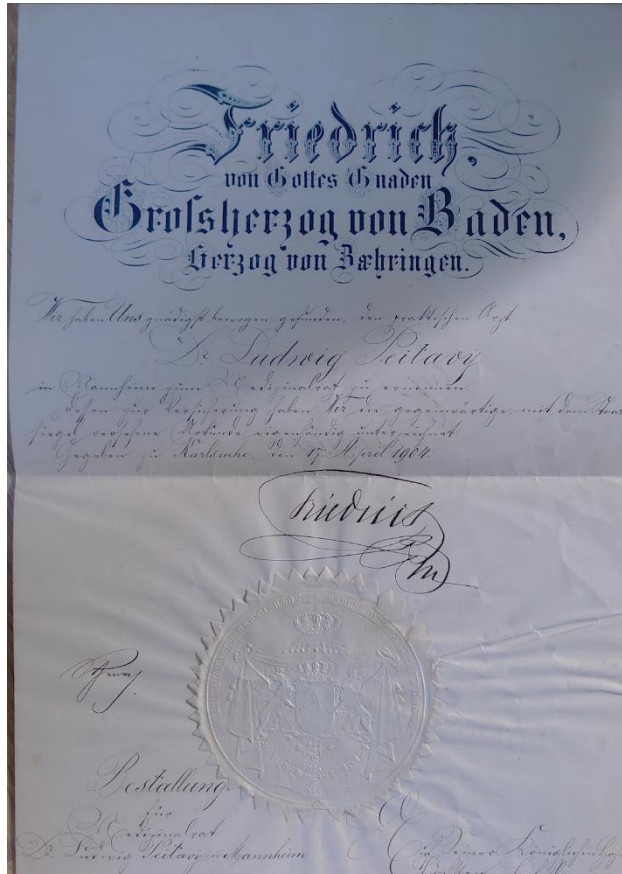 Friedrich,
von Gottes Gnaden
Grossherzog von Baden,
Herzog von Zæhringen.
Wir haben Uns gnädigst bewogen gefunden, den praktischen Arzt
Dr. Ludwig Peitavy
in Mannheim zum Medizinalrat zu ernennen.
Dessen zur Versicherung haben Wir die gegenwärtige, mit dem Staats
siegel versehene Urkunde eigenhändig unterzeichnet.
Gegeben zu Karlsruhe, den 17. April 1904.
Friedrich
Bestallung
für
Medizinalrat
Dr. Ludwig Peitavy in Mannheim
Seiner Königlichen